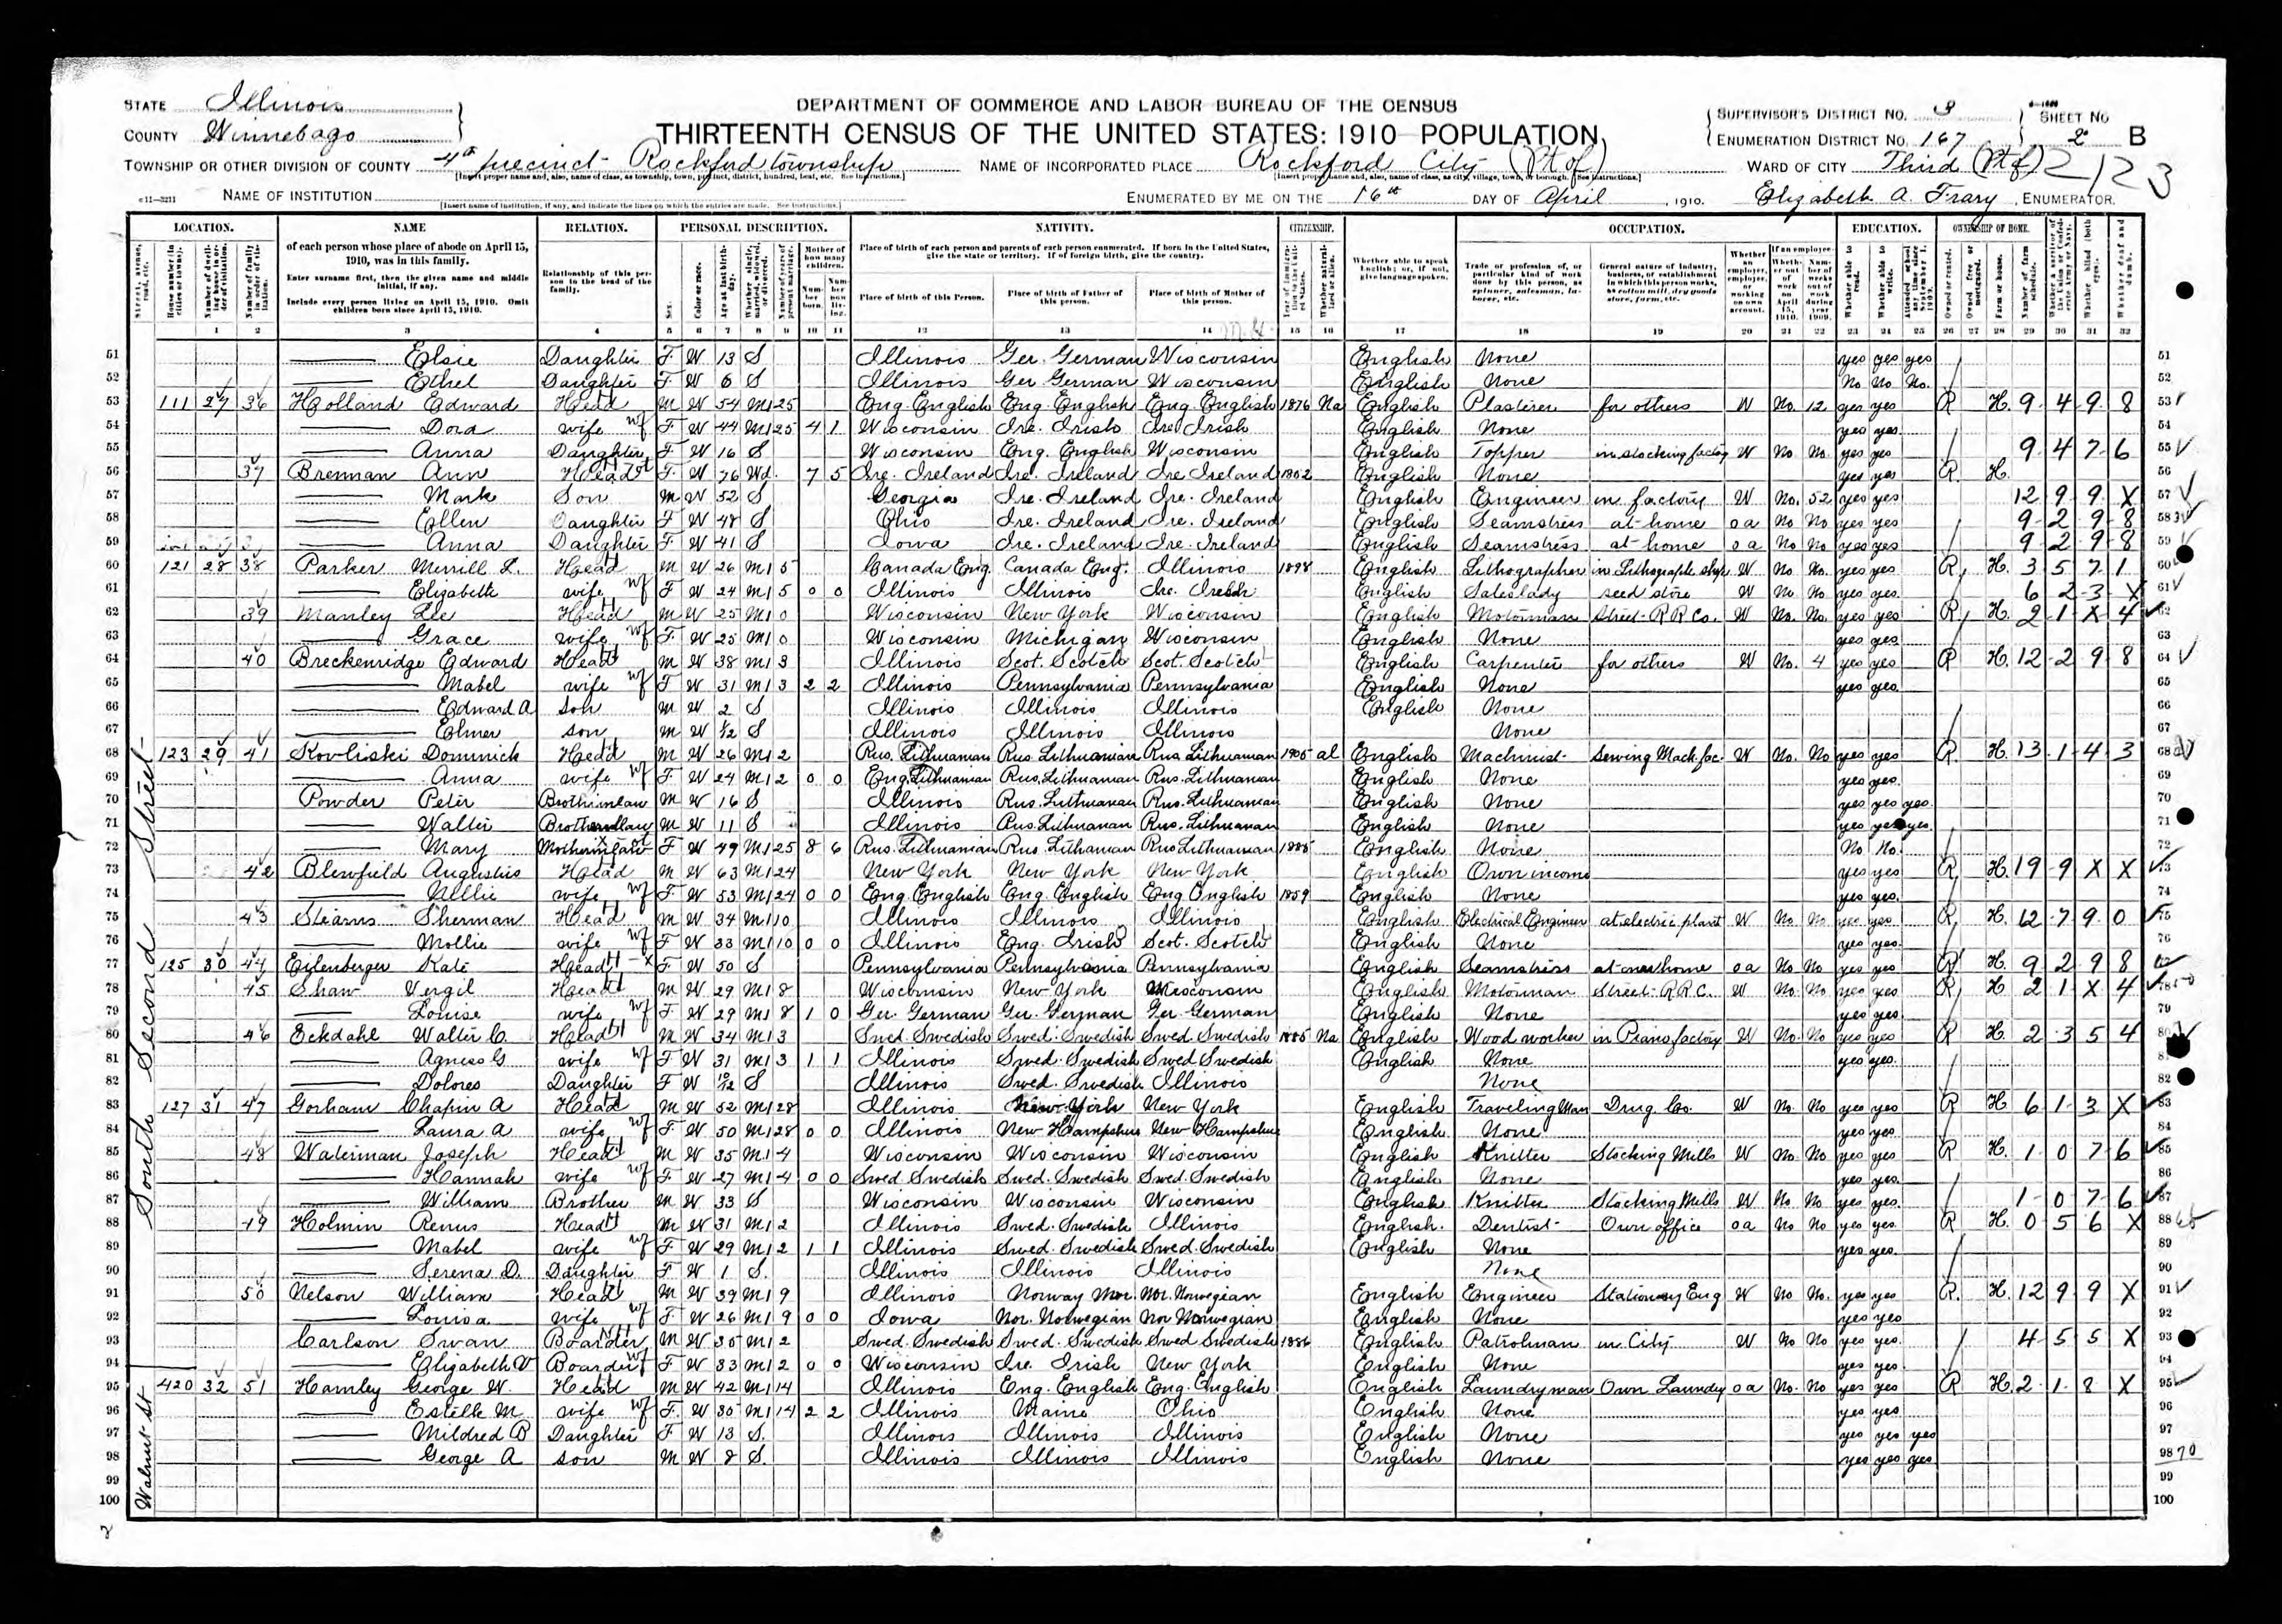 STATE Illinois
COUNTY Winnebago
DEPARTMENT OF COMMERCE AND LABOR BUREAU OF THE CENSUS
THIRTEENTH CENSUS OF THE UNITED STATES: 1910 POPULATION
SUPERVISOR'S DISTRICT NO. 3 SHEET NO
ENUMERATION DISTRICT NO. 167 2 B
TOWNSHIP OR OTHER DIVISION OF COUNTY 4th precinct- Rockford township NAME OF INCORPORATED PLACE Rockford City (Pt of) WARD OF CITY Third (Pt of) 2123
NAME OF INSTITUTION ENUMERATED BY ME ON THE 16th DAY OF April, 1910. Elizabeth A. Frary, ENUMERATOR.
LOCATION. NAME RELATION. PERSONAL DESCRIPTION. NATIVITY. CITIZENSHIP. OCCUPATION. EDUCATION. OWNERSHIP OF HOME.
of each person whose place of abode on April 15, 1910, was in this family.
Enter surname first, then the given name and middle initial, if any.
Include every person living on April 15, 1910. Omit children born since April 15, 1910.
Relationship of this person to the head of the family.
Place of birth of each person and parents of each person enumerated. If born in the United States, give the state or territory. If of foreign birth, give the country.
Place of birth of this Person. Place of birth of Father of this person. Place of birth of Mother of this person.
South Second Street
51 Elsie Daughter F W 13 S Illinois Ger. German Wisconsin English None yes yes yes 51
52 Ethel Daughter F W 6 S Illinois Ger German Wisconsin English None No No No. 52
53 111 27 36 Holland Edward Head M W 54 M1 25 Eng. English Eng. English Eng. English 1876 Na English Plasterer for others W No. 12 yes yes R H. 9 4 9 8 53
54 Dora wife F W 44 M1 25 4 1 Wisconsin Ire. Irish Ire. Irish English None yes yes 54
55 Anna Daughter F W 16 S Wisconsin Eng. English Wisconsin English Topper in stocking factory W No No yes yes 9 4 7 6 55
56 37 Brennan Ann Head F. W 76 Wd. 7 5 Ire. Ireland Ire. Ireland Ire Ireland 1852 English None yes yes R H. 56
57 Mark Son M W 52 S Georgia Ire. Ireland Ire. Ireland English Engineer in factory W No. 52 yes yes 12 9 9 X 57
58 Ellen Daughter F W 48 S Ohio Ire. Ireland Ire. Ireland English Seamstress at home oa No No yes yes 9 2 9 8 58
59 Anna Daughter F. W 41 S Iowa Ire. Ireland Ire. Ireland English Seamstress at home oa No No yes yes 9 2 9 8 59
60 121 28 38 Parker Merrill L. Head M W 26 M1 5 Canada Eng. Canada Eng. Illinois 1898 English Lithographer in Lithograph shop W No No. yes yes R H. 3 5 7 1 60
61 Elizabeth wife F W 24 M1 5 0 0 Illinois Illinois Ire. Irish English Saleslady seed store W No No yes yes. 6 2 3 X 61
62 39 Manley Lee Head M W 25 M1 0 Wisconsin New York Wisconsin English Motorman Street-R R Co. W No. No. yes yes R H. 2 1 X 4 62
63 Grace wife F. W 25 M1 0 Wisconsin Michigan Wisconsin English None yes yes 63
64 40 Breckenridge Edward Head M W 38 M1 3 Illinois Scot. Scotch Scot. Scotch English Carpenter for others W No. 4 yes yes R H. 12 2 9 8 64
65 Mabel wife F W 31 M1 3 2 2 Illinois Pennsylvania Pennsylvania English None yes yes. 65
66 Edward A son M W 2 S Illinois Illinois Illinois English None 66
67 Elmer son M W 1/12 S Illinois Illinois Illinois None 67
68 123 29 41 Kovliski Dominick Head M W 26 M1 2 Rus. Lithuanian Rus. Lithuanian Rus. Lithuanian 1905 al English Machinist- Sewing Mach. fac. W No. No yes yes R. H. 13 1 4 3 68
69 Anna wife F W 24 M1 2 0 0 Eng. Lithuanian Rus. Lithuanian Rus. Lithuanian English None yes yes. 69
70 Powder Peter Brotherinlaw M W 16 S Illinois Rus. Lithuanian Rus. Lithuanian English None yes yes yes 70
71 Walter Brotherinlaw M W 11 S Illinois Rus. Lithuanian Rus. Lithuanian English None yes yes yes. 71
72 Mary Motherinlaw F W 49 M1 25 8 6 Rus. Lithuanian Rus. Lithuanian Rus Lithuanian 1885 English None No No. 72
73 42 Blewfield Augustus Head M W 63 M1 24 New York New York New York English Own income yes yes R H. 19 9 X X 73
74 Nellie wife F W 53 M1 24 0 0 Eng English Eng. English Eng English 1859 English None yes yes. 74
75 43 Stearns Sherman Head M W 34 M1 10 Illinois Illinois Illinois English Electrical Engineer at electric plant W No. No yes yes R H. 12 7 9 0 75
76 Mollie wife F W 33 M1 10 0 0 Illinois Eng. Irish Scot. Scotch English None yes yes. 76
77 125 30 44 Eilenberger Kate Head F. W 50 S Pennsylvania Pennsylvania Pennsylvania English Seamstress at home oa No No yes yes R H. 9 2 9 8
78 45 Shaw Vergil Head M W 29 M1 8 Wisconsin New York Wisconsin English Motorman Street-R R C. W No No yes yes R H 2 1 X 4 78
79 Louise wife F W 29 M1 8 1 0 Ger. German Ger. German Ger German English None yes yes. 79
80 46 Eckdahl Walter C. Head M W 34 M1 3 Swed. Swedish Swed. Swedish Swed Swedish 1885 Na English Wood worker in Piano factory W No. No yes yes R H. 2 3 5 4 80
81 Agness G wife F W 31 M1 3 1 1 Illinois Swed. Swedish Swed Swedish English None yes yes.
82 Dolores Daughter F W 10/12 S Illinois Swed. Swedish Illinois None 82
83 127 31 47 Gorham Chapin A Head M W 52 M1 28 Illinois New York New York English Traveling Man Drug Co. W No. No yes yes R H 6 1 3 X 83
84 Laura A wife F W 50 M1 28 0 0 Illinois New Hampshire New Hampshire English None yes yes. 84
85 48 Waterman Joseph Head M W 35 M1 4 Wisconsin Wisconsin Wisconsin English Knitter Stocking Mills W No No yes yes R H. 1 0 7 6 85
86 Hannah wife F. W 27 M1 4 0 0 Swed Swedish Swed. Swedish Swed. Swedish English None yes yes. 86
87 William Brother M W 33 S Wisconsin Wisconsin Wisconsin English Knitter Stocking Mills W No No yes yes. 1 0 7 6 87
88 49 Holmin Renus Head M W 31 M1 2 Illinois Swed. Swedish Illinois English. Dentist- Own office oa No No yes yes R H. 0 5 6 X 88
89 Mabel wife F W 29 M1 2 1 1 Illinois Swed. Swedish Swed. Swedish English None yes yes. 89
90 Serena D. Daughter F W 1 S. Illinois Illinois Illinois None 90
91 50 Nelson William Head M W 39 M1 9 Illinois Norway Nor. Nor. Norwegian English Engineer Stationary Eng W No No. yes yes R. H. 12 9 9 X 91
92 Louisa wife F. W 26 M1 9 0 0 Iowa Nor. Norwegian Nor Norwegian English None yes yes 92
93 Carlson Swan Boarder M W 35 M1 2 Swed. Swedish Swed. Swedish Swed Swedish 1886 English Patrolman in City W No No yes yes. 4 5 5 X 93
94 Elizabeth V Boarder F W 33 M1 2 0 0 Wisconsin Ire. Irish New York English None yes yes. 94
Walnut St
95 420 32 51 Hamley George W. Head M W 42 M1 14 Illinois Eng. English Eng. English English Laundryman Own Laundry oa No. No yes yes R H. 2 1 8 X 95
96 Estelle M wife F. W 35 M1 14 2 2 Illinois Maine Ohio English None yes yes 96
97 Mildred B Daughter F W 13 S. Illinois Illinois Illinois English None yes yes yes 97
98 George A son M W 8 S. Illinois Illinois Illinois English None yes yes yes 98 70
99 99
100 100